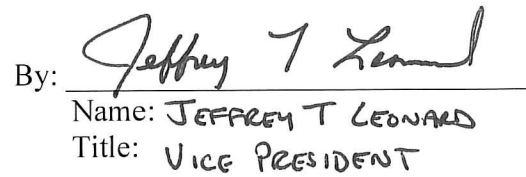 By: Jeffrey T Leonard
Name: JEFFREY T LEONARD
Title: VICE PRESIDENT